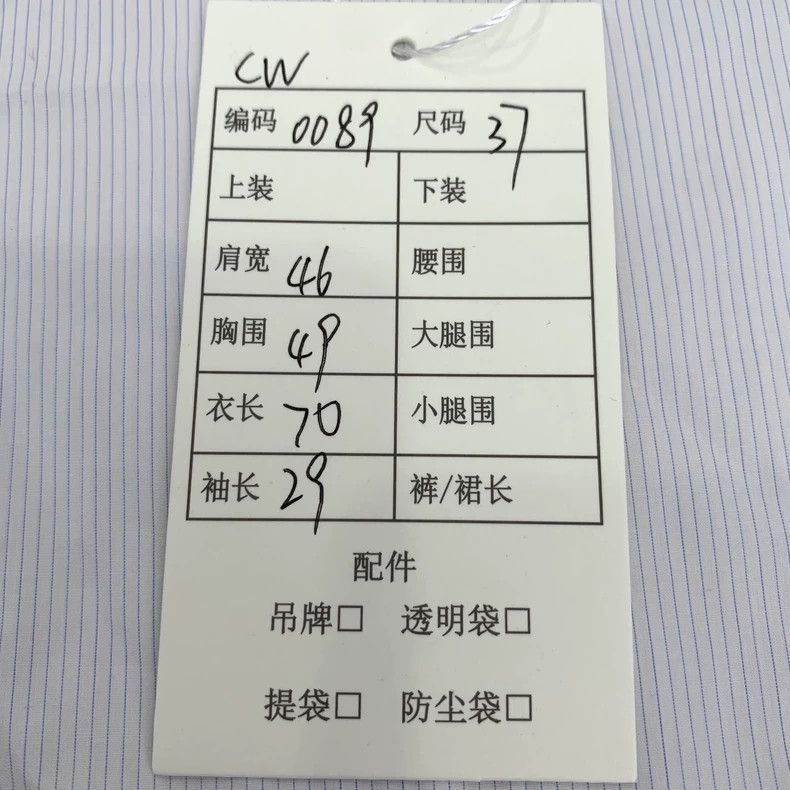 CW
编码 0089 尺码 37
上装 下装
肩宽 46 腰围
胸围 49 大腿围
衣长 70 小腿围
袖长 29 裤/裙长
配件
吊牌□ 透明袋□
提袋□ 防尘袋□